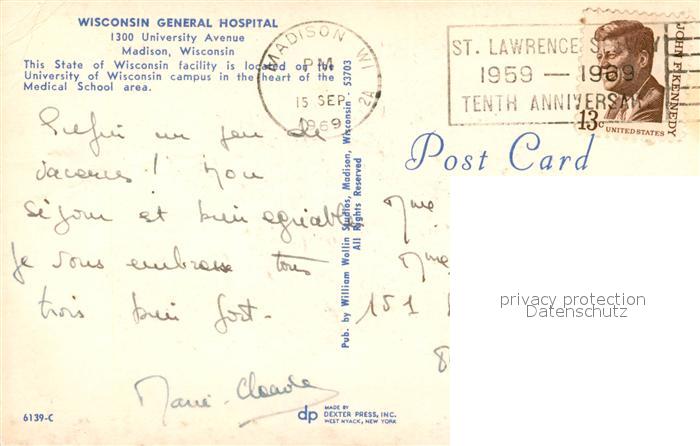 WISCONSIN GENERAL HOSPITAL
1300 University Avenue
Madison, Wisconsin
This State of Wisconsin facility is located on the
University of Wisconsin campus in the heart of the
Medical School area.
MADISON WI
PM
15 SEP
1969
2A
ST. LAWRENCE SEAWAY
1959 — 1969
TENTH ANNIVERSARY
JOHN F. KENNEDY
13c
UNITED STATES
Post Card
Enfin un peu de
vacances! Mon
séjour est bien agréable
je vous embrasse tous
trois bien fort.
Marie-Claude
Mme
Mme
151
8
Pub. by William Wollin Studios, Madison, Wisconsin - 53703
All Rights Reserved
privacy protection
Datenschutz
6139-C
dp
MADE BY
DEXTER PRESS, INC.
WEST NYACK, NEW YORK